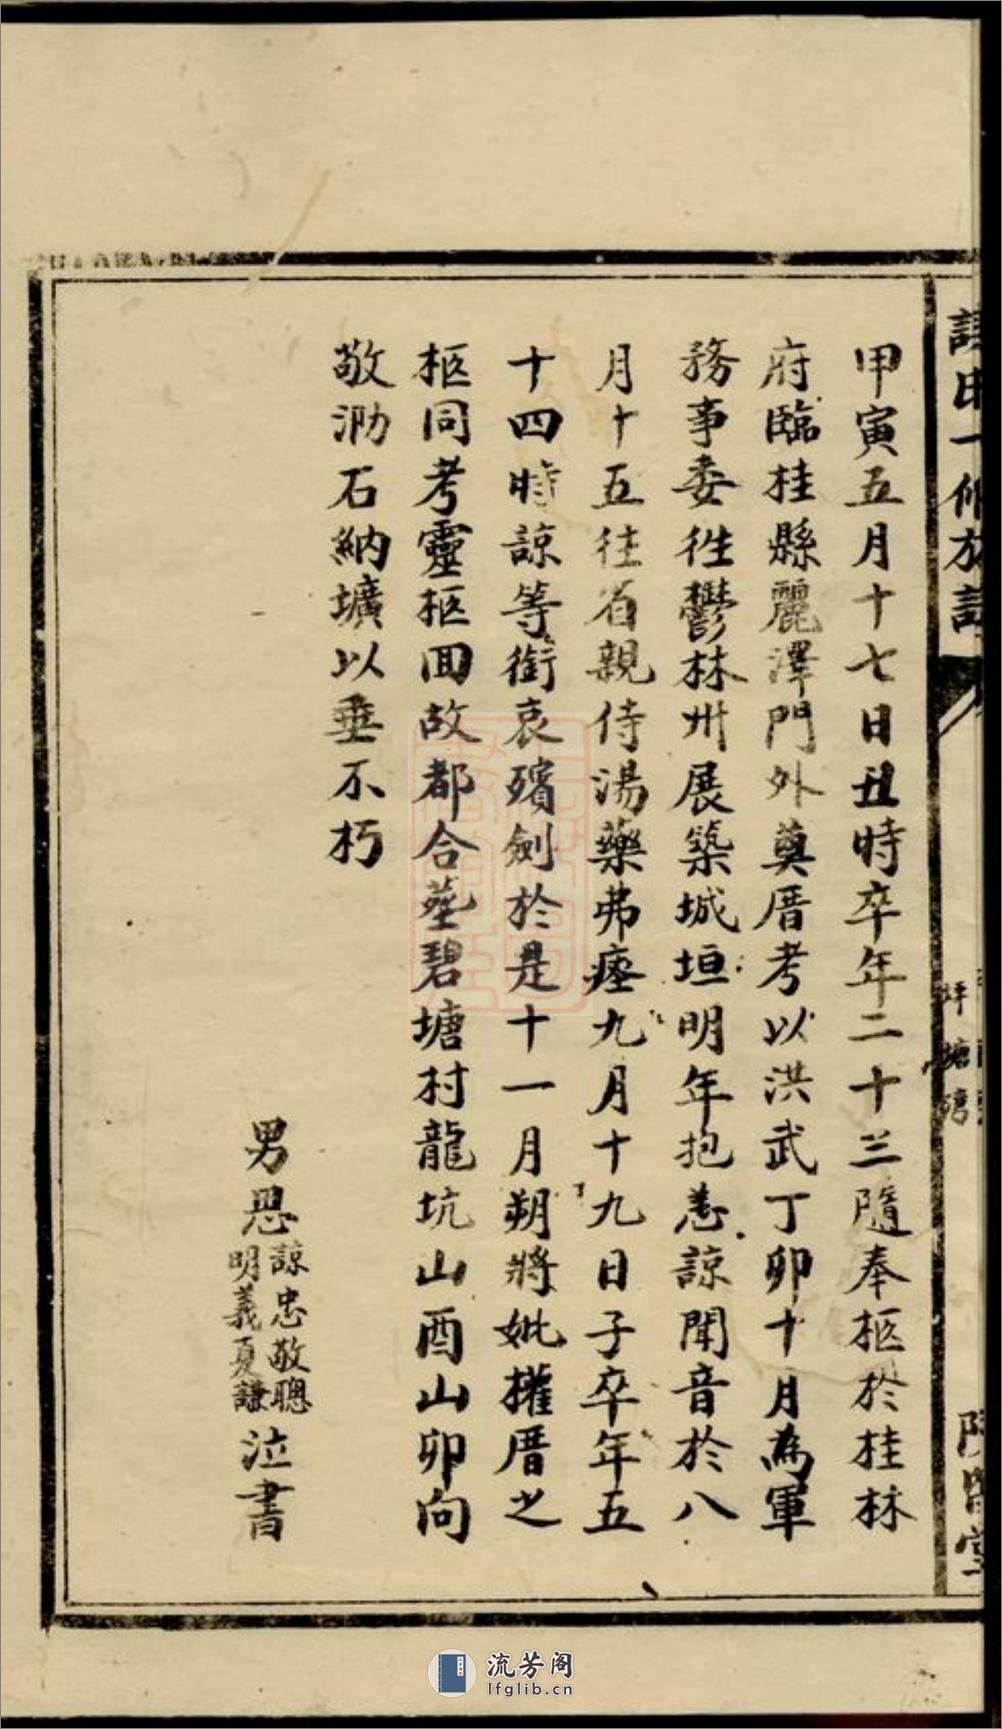 甲寅五月十七日丑時卒年二十三隨奉柩於桂林
府臨桂縣麗澤門外奠厝考以洪武丁卯十月為軍
務事委徃鬱林州展築城垣明年抱恙諒聞音於八
月十五往省親侍湯藥弗痊九月十九日子卒年五
十四時諒等銜哀殯劍於是十一月朔將妣權厝之
柩同考靈柩回故都合塟碧塘村龍坑山酉山卯向
敬泐石納壙以垂不朽
男恩諒忠敬聰明義夏謙泣書
坪塘
流芳阁
lfglib.cn